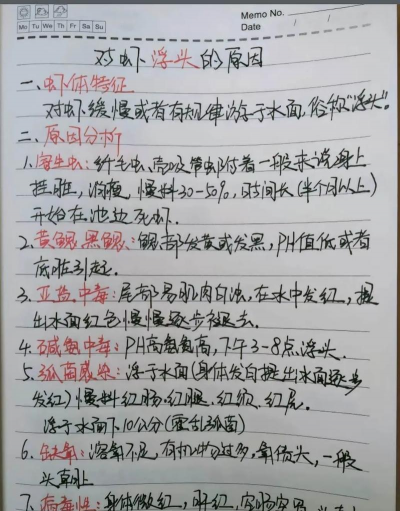 Memo No.
Mo Tu We Th Fr Sa Su
Date / /
对虾浮头的原因
一、虾体特征
对虾缓慢或者有规律游于水面，俗称“浮头”。
二、原因分析
1、寄生虫：纤毛虫、高吸管虫附着一般来说身上
挂脏，消瘦，慢料30-50%，时间长（半个月以上）
开始在池边死虾.
2、黄鳃、黑鳃：鳃部发黄或发黑，PH值低或者
底脏引起.
3、亚盐中毒：尾部易肌肉白浊，在水中发红，提
出水面红色慢慢逐步褪去.
4、碱氨中毒：PH高氨氮高，下午3-8点浮头.
5、弧菌感染：浮于水面（身体发白提出水面逐步
发红）慢料红肠.红腿、红须、红尾.
浮于水面下10公分（霍乱弧菌）
6、缺氧：溶氧不足，有机物过多，氧债大，一般
头朝上
7、病毒性：身体微红，肝红，空肠空胃